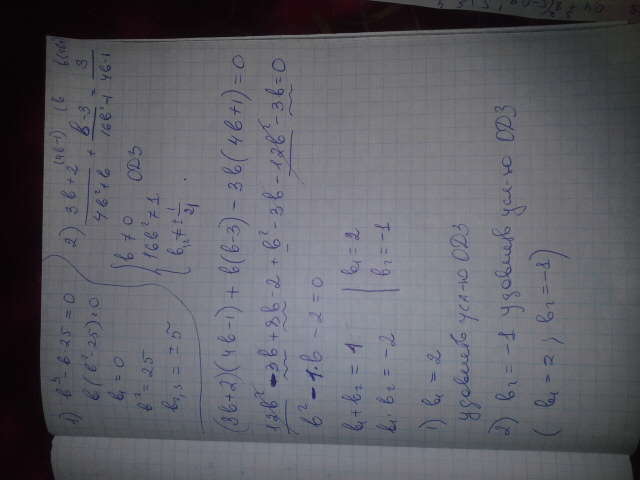 1) b⁴ - b·25 = 0
b(b² - 25) = 0
b₁ = 0
b² = 25
b₂,₃ = ±5
2) (3b+2)/(4b²+b) + (b-3)/(16b²-1) = 3/(4b-1)
b ≠ 0 ОДЗ
16b² ≠ 1
b₁,₂ ≠ ± 1/4
(3b+2)(4b-1) + b(b-3) - 3b(4b+1) = 0
12b² - 3b + 8b - 2 + b² - 3b - 12b² - 3b = 0
b² - 1·b - 2 = 0
b₁ + b₂ = 1 | b₁ = 2
b₁ · b₂ = -2 | b₂ = -1
1) b₁ = 2
удовлетв усл-ю ОДЗ
2) b₂ = -1 удовлетв усл-ю ОДЗ
( b₁ = 2 ; b₂ = -1 )